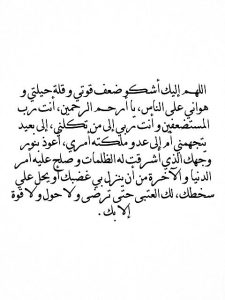 اللهم إليك أشكو ضعف قوتي و قلة حيلتي و
هواني على الناس، يا أرحم الرحمين، أنت رب
المستضعفين و أنت ربي إلى من تكلني، إلى بعيد
يتجهمني أم إلى عدو ملكته أمري، أعوذ بنور
وجهك الذي أشرقت له الظلمات و صلح عليه أمر
الدنيا و الآخرة من أن ينزل بي غضبك أو يحل علي
سخطك، لك العتبى حتى ترضى و لا حول و لا قوة
إلا بك.